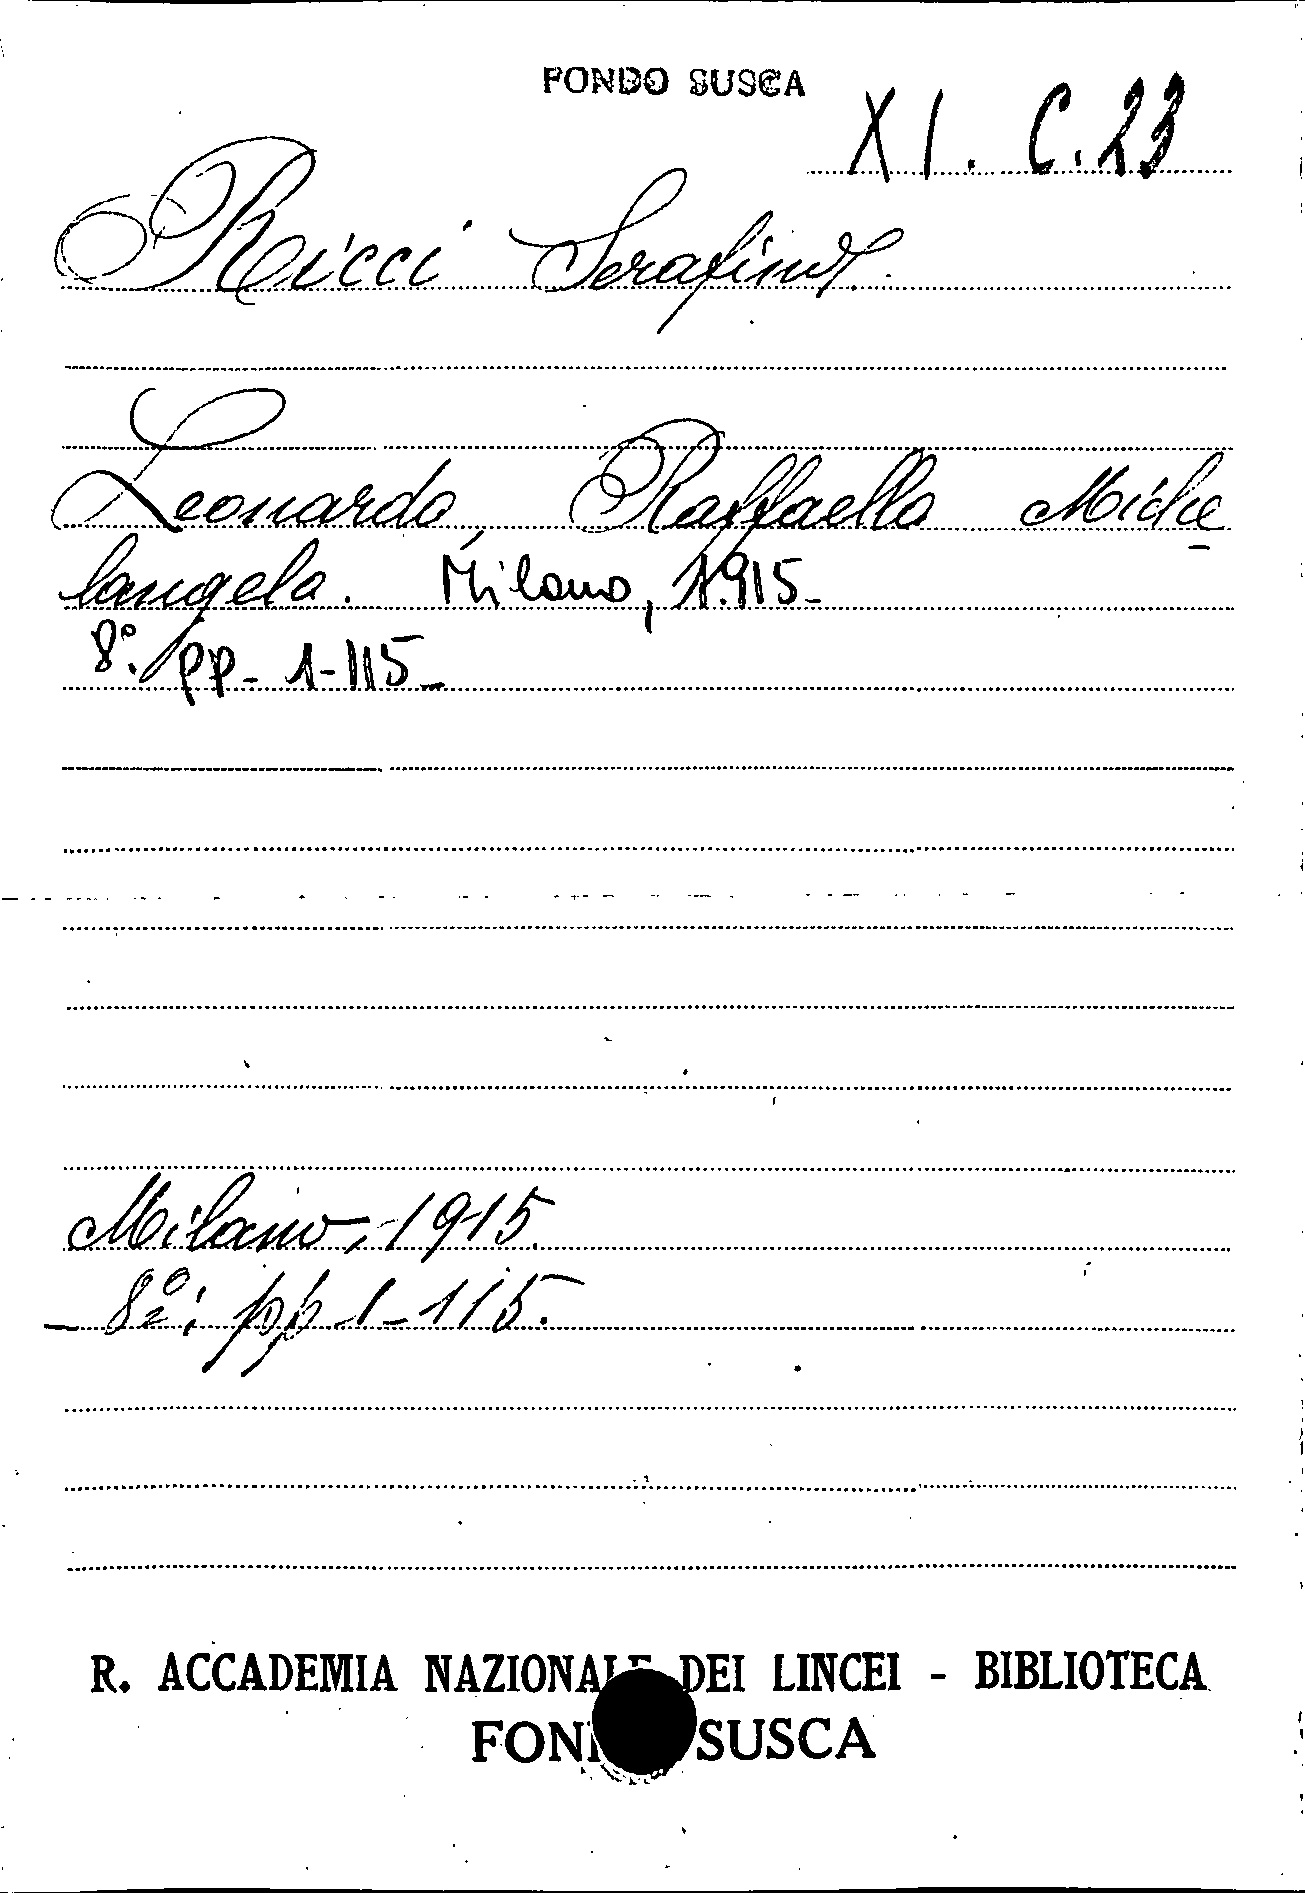 FONDO SUSCA
XI. C. 23
Ricci Serafino.
Leonardo, Raffaello Miche
langelo. Milano, 1915-
8º. pp- 1-115-
Milano, 1915.
- 8º; pp 1-115.
R. ACCADEMIA NAZIONALE DEI LINCEI - BIBLIOTECA
FONDO SUSCA